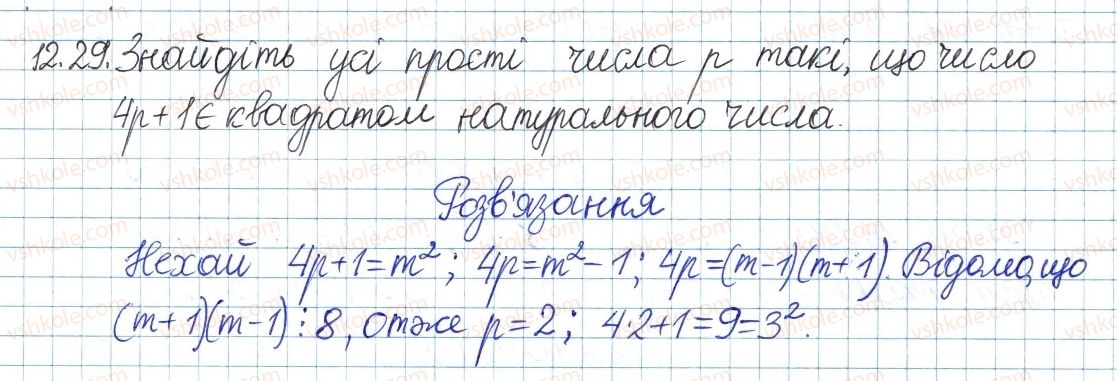 12.29. Знайдіть усі прості числа p такі, що число
4p+1 є квадратом натурального числа.
Розв'язання
Нехай 4p+1=m²; 4p=m²-1; 4p=(m-1)(m+1). Відомо, що
(m+1)(m-1)⋮8, отже p=2; 4·2+1=9=3².